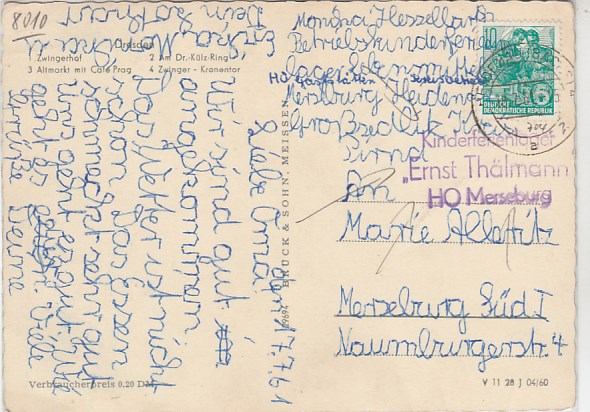 8010
Dresden
1 Zwingerhof 2 Am Dr.-Külz-Ring
3 Altmarkt mit Café Prag 4 Zwinger - Kronentor
den 17.7.61
Liebe Oma!
Wir sind gut
angekommen
Das Wetter ist nicht
schön. Das Essen
schmeckt sehr gut
und geht es gut. Wie
geht es Viele
Grüße Deine
Monika u.
Dein
Monika Hesselbarth
Betriebskinderferien
lager
HO Gaststätten
Merseburg Heidenau
Großsedlitz Kreis
Pirna
An
Marie
Merseburg Süd I
Naumburgerstr. 4
10
DEUTSCHE
DEMOKRATISCHE REPUBLIK
Kinderferienlager
„Ernst Thälmann
HO Merseburg
BRÜCK & SOHN, MEISSEN
Verbraucherpreis 0.20 DM
V 11 28 J 04/60